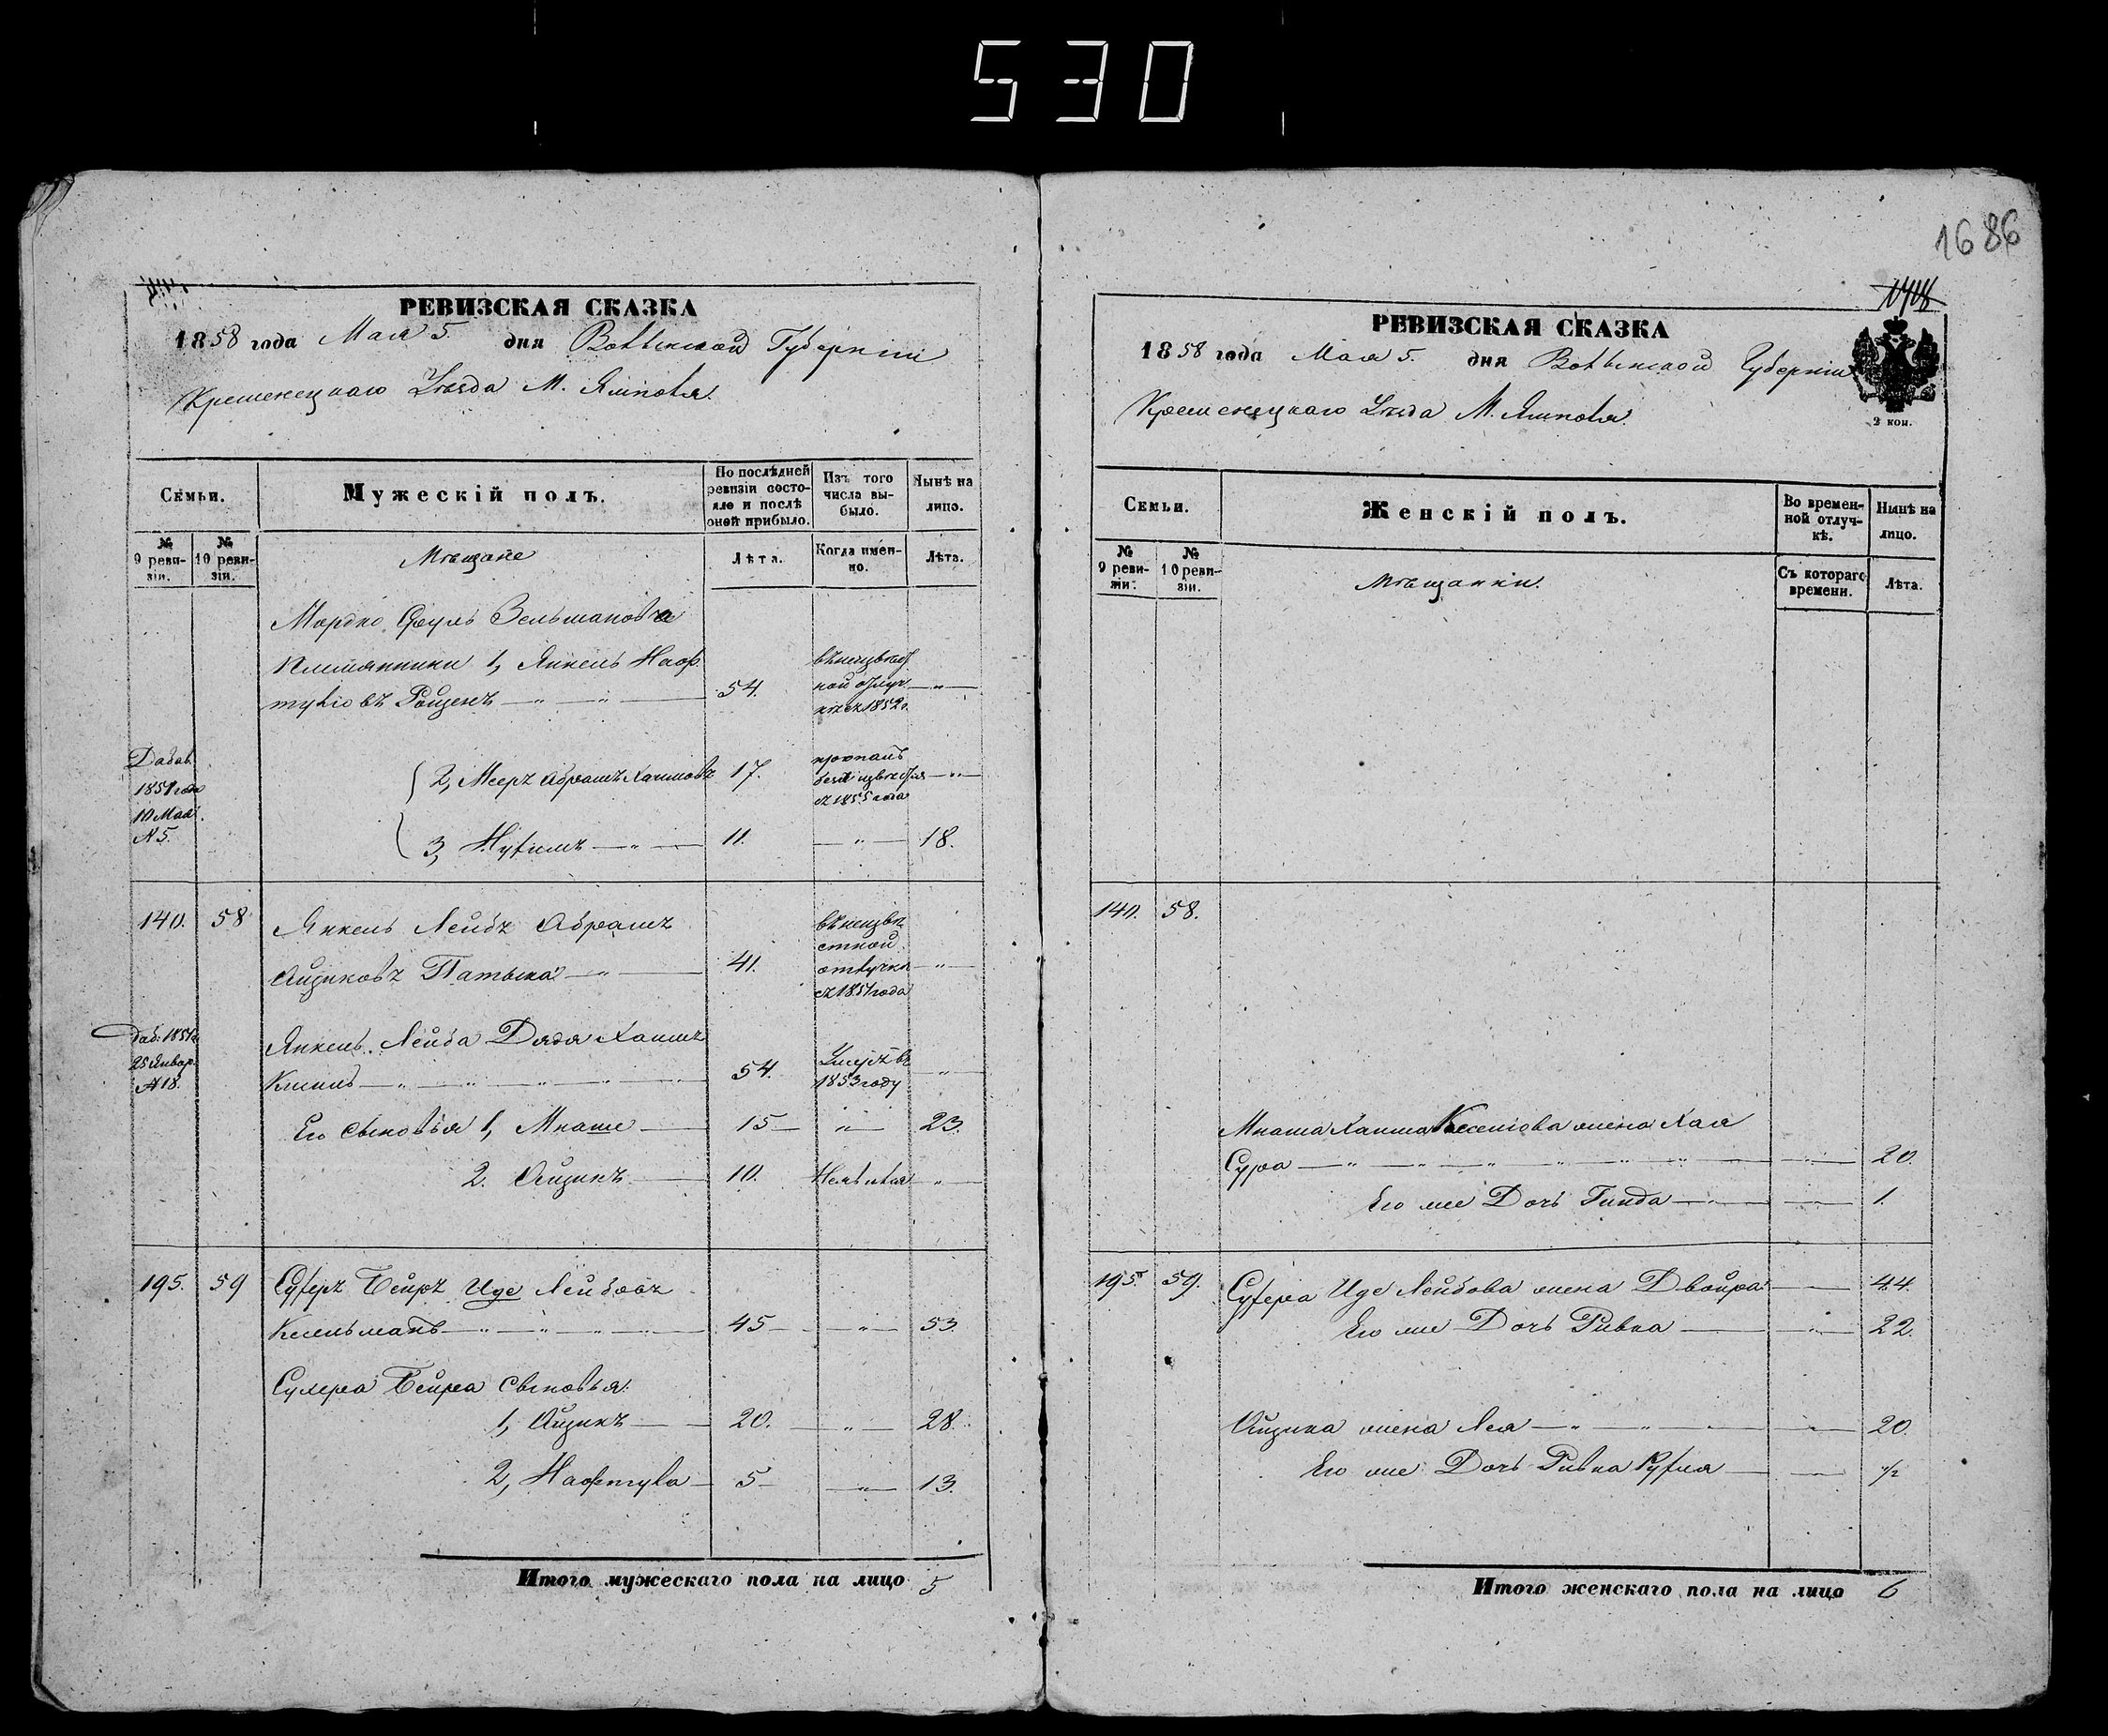 530
1686
РЕВИЗСКАЯ СКАЗКА
1858 года Мая 5. дня Волынской Губерніи
Кременецкаго Уезда М. Ямполя.
Семьи.
Мужескій полъ.
По послѣдней ревизіи состояло и послѣ оной прибыло.
Изъ того числа выбыло.
Нынѣ на лицо.
№ 9 ревизіи.
№ 10 ревизіи.
Мѣщане
Лѣта.
Когда именно.
Лѣта.
Мордко Сруль Зельманова
племянники 1, Янкель Наф
тулiовъ 54. въ неизвѣст
ной отлуч
кѣ съ 1852 г.
Добав.
1851 года
10 Мая
№ 5.
2, Мееръ Абрамъ Хаимовъ 17. пропалъ
безъ извѣстія
съ 1855 года
3, Нухимъ 11. 18.
140. 58 Янкель Лейбъ Абрамъ
Айзиковъ 41. въ неизвѣ
стной
отлучкѣ
съ 1851 года
Доб: 1851 г.
25 Январ.
№ 18.
Янкель Лейба Дядя Хаимъ
54. Умеръ въ
1853 году
Его сыновья 1, Мнаше 15 23.
2. Айзикъ 10. Неявился
195. 59 Сухеръ Беиръ Иде Лейбовъ
Кесельманъ 45 53.
Сухера Беира сыновья:
1, Айзикъ 20. 28.
2, Нафтула 5 13.
Итого мужескаго пола на лицо 5
РЕВИЗСКАЯ СКАЗКА
1858 года Мая 5. дня Волынской Губерніи
Кременецкаго Уезда М. Ямполя.
2 коп.
Семьи.
Женскій полъ.
Во временной отлучкѣ.
Нынѣ на лицо.
№ 9 ревизіи.
№ 10 ревизіи.
Мѣщанки.
Съ котораго времени.
Лѣта.
140. 58.
Мнаша Хаима жена Хая
Сура 20.
Его же Дочь Гинда 1.
195. 59. Сухера Иде Лейбова жена Двойра 44.
Его же Дочь Ривка 22.
Айзика жена Лея 20.
Его же Дочь Ривка Рухля 1/2
Итого женскаго пола на лицо 6